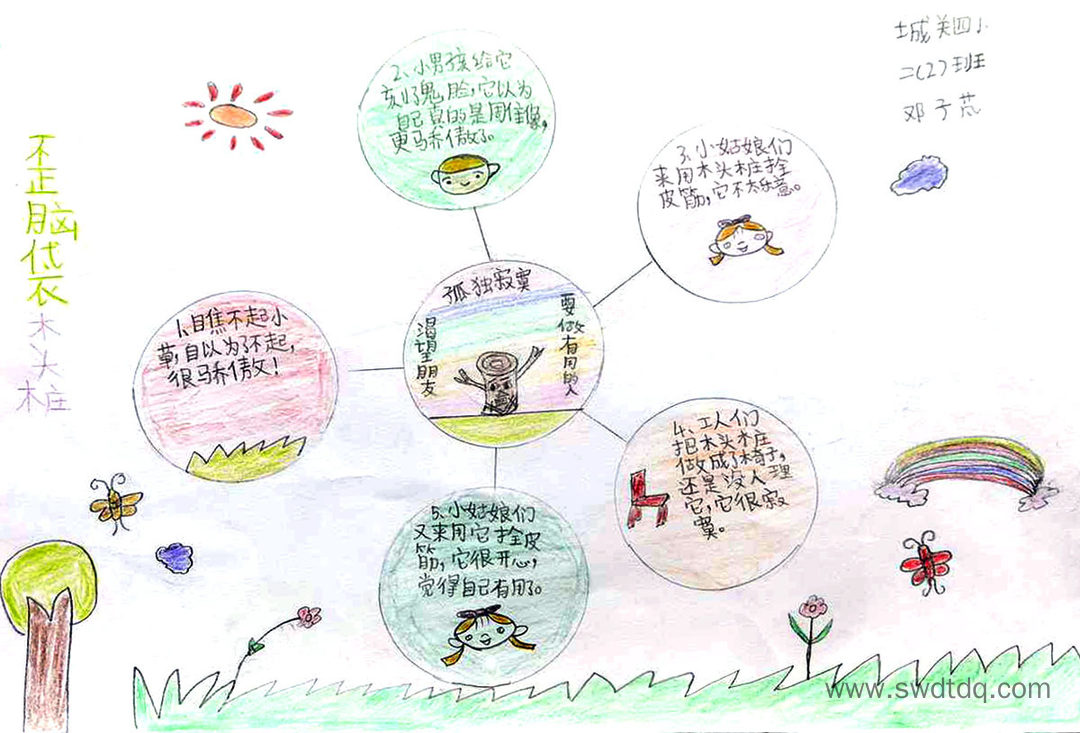 歪脑袋木头桩
城关四小
二(2)班
邓子
孤独寂寞
渴望朋友
要做有用的人
1、瞧不起小
草,自以为了不起,
很骄傲!
2、小男孩给它
刻了鬼脸,它以为
自己真的是雕像,
更骄傲了。
3、小姑娘们
来用木头桩拴
皮筋,它不太乐意。
4、工人们
把木头桩
做成了椅子,
还是没人理
它,它很寂
寞。
5、小姑娘们
又来用它拴皮
筋,它很开心,
觉得自己有用了。
www.swdtdq.com